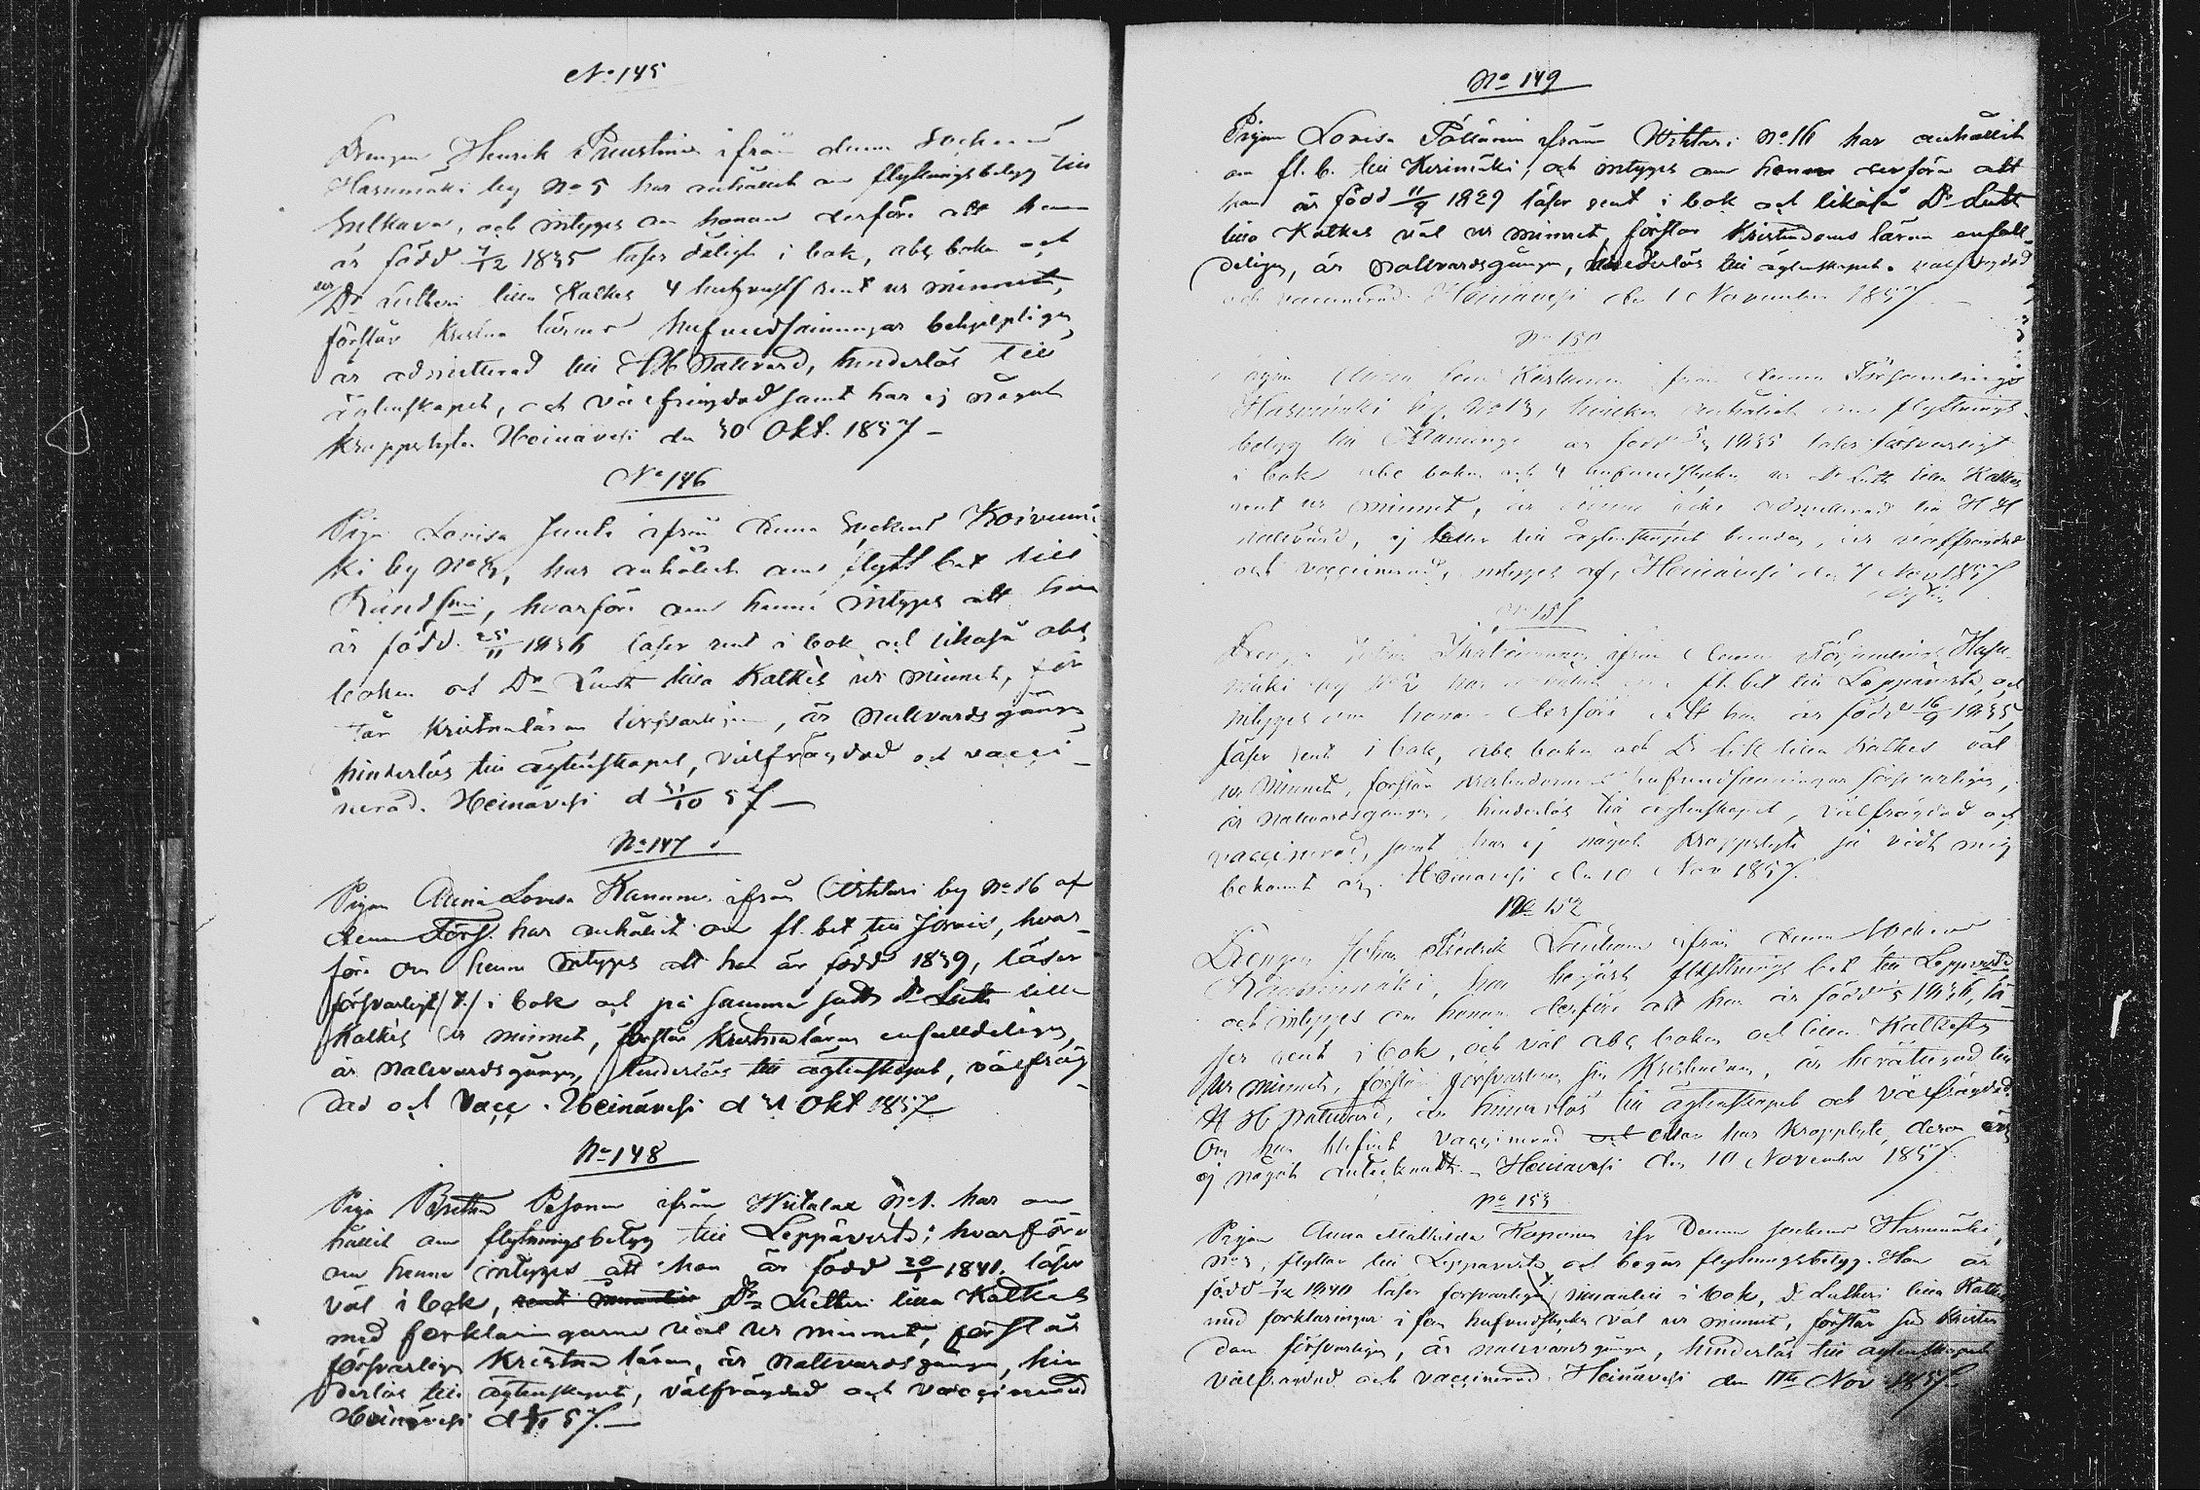 No 145
Drengen Henrik Puustinen ifrån denna Socken
Hasumäki by No 5 har anhållit om flyttningsbetyg till
Sulkava, och intyges om honom derföre att han
är född 7/12 1835 läser dåligt i bok, abc boken och
ur Dr Lutheri lilla Katkes 4 hufvudst rent ur minnet,
förstår Kristna lärans hufvudsanningar behjelpligen
är admitterad till HH Nattvard, hinderlös till
ägtenskapet, och välfrejdad samt har ej något
kroppslyte. Heinävesi den 30 Okt. 1857 –
No 146
Pigan Lovisa Junti ifrån denna Sockens Koivumä-
ki by No, har anhållit om flytt bet till
, hvarföre om henne intyges att hon
är född 25/11 1836 läser rent i bok och likaså abc
boken och Dr Luth lilla Katkes ur minnet, för
står Kristnaläran försvarligen, är nattvardsgången
hinderlös till ägtenskapet, välfrägdad och vacci-
nerad. Heinävesi d 31/10 57 –
No 147
Pigan Anna Lovisa Ranunen ifrån Wihtari by No 16 af
denna Förs. har anhållit om fl. bet till Jorois, hvar-
före om henne intyges att hon är född 1839, läser
försvarligt i bok och på samma sätt Dr Luth lilla
Katkes ur minnet, förstår Kristnaläran enfalldeligen,
är nattvardsgången, hinderlös till ägtenskapet, välfräg-
dad och vacc. Heinävesi d 31 Okt 1857
No 148
Pigan Pesonen ifrån Wiitalax No 1. har an-
hållit om flyttningsbetyg till Leppävirta; hvarföre
om henne intyges att hon är född 20/1 1840. läser
väl i bok, Dr Lutheri lilla Katkes
med förklaringarna väl ur minnet, förstår
försvarligen Kristna läran, är nattvardsgången, hin
derlös till ägtenskapet, välfrägdad och vaccinerad
Heinävesi d 57. –
No 149
Pigan Lovisa Pöllänen ifrån Wihtari No 16 har anhållit
om fl. b. till Kerimäki, och intyges om henne derföre att
hon är född 11/9 1829 läser rent i bok och likaså Dr Luth
lilla Katkes väl ur minnet, förstår Kristendoms läran enfall-
deligen, är nattvardsgången, hinderlös till ägtenskapet. välfrägdad
och vaccinerad. Heinävesi den 1 November 1857. –
No 150
Pigan Anna från denna Församlings
Hasumäki by No 13, anhållit om flyttnings-
betyg till är född 1835 läser försvarligt
i bok abc boken och 4 hufvudstycken ur Dr Luth lilla Katkes
rent ur minnet, är ännu icke admitterad till H H
nattvard, ej heller till ägtenskapet bunden, är välfrägdad
och vaccinerad, intyges af, Heinävesi den 7 Nov 1857
No 151
Drengen ifrån denna Församlings Hasu-
mäki by No 2 har anhållit om fl. bet till Leppävirta, och
intyges om honom derföre att han är född 16/9 1835,
läser rent i bok, abc boken och Dr Luth lilla Katkes väl
ur Minnet, förstår Kristendomens hufvudsanningar försvarligen,
är nattvardsgången, hinderlös till ägtenskapet, välfrägdad och
vaccinerad, samt har ej något kroppslyte så vidt mig
bekant är. Heinävesi den 10 Nov 1857.
No 152
Drengen Johan Fredrik ifrån denna Socken
, har begärt flyttnings bet till Leppävirta
och intyges om honom derföre att han är född 1836, lä-
ser rent i bok, och väl abc boken och lilla Katkesen
ur minnet, förstår försvarligen sin Kristendom, är berättigad till
H H Nattvard, är hinderlös till ägtenskapet och välfrägdad.
Om han blifvit vaccinerad eller har kroppslyte, derom är
ej något antecknadt. – Heinävesi den 10 November 1857.
No 153
Pigan Anna Mathilda Koponen ifr Denna sockens Hasumäki,
No 3, flyttar till Leppävirta och begär flyttningsbetyg. Hon är
född 1840 läser försvarligen innantill i bok, Dr Lutheri lilla Katkes
med förklaringar i fem hufvudstycken väl ur minnet, förstår sin Kristen
dom försvarligen, är nattvardsgången, hinderlös till ägtenskapet
välfrägdad och vaccinerad. Heinävesi den 11te Nov 1857.